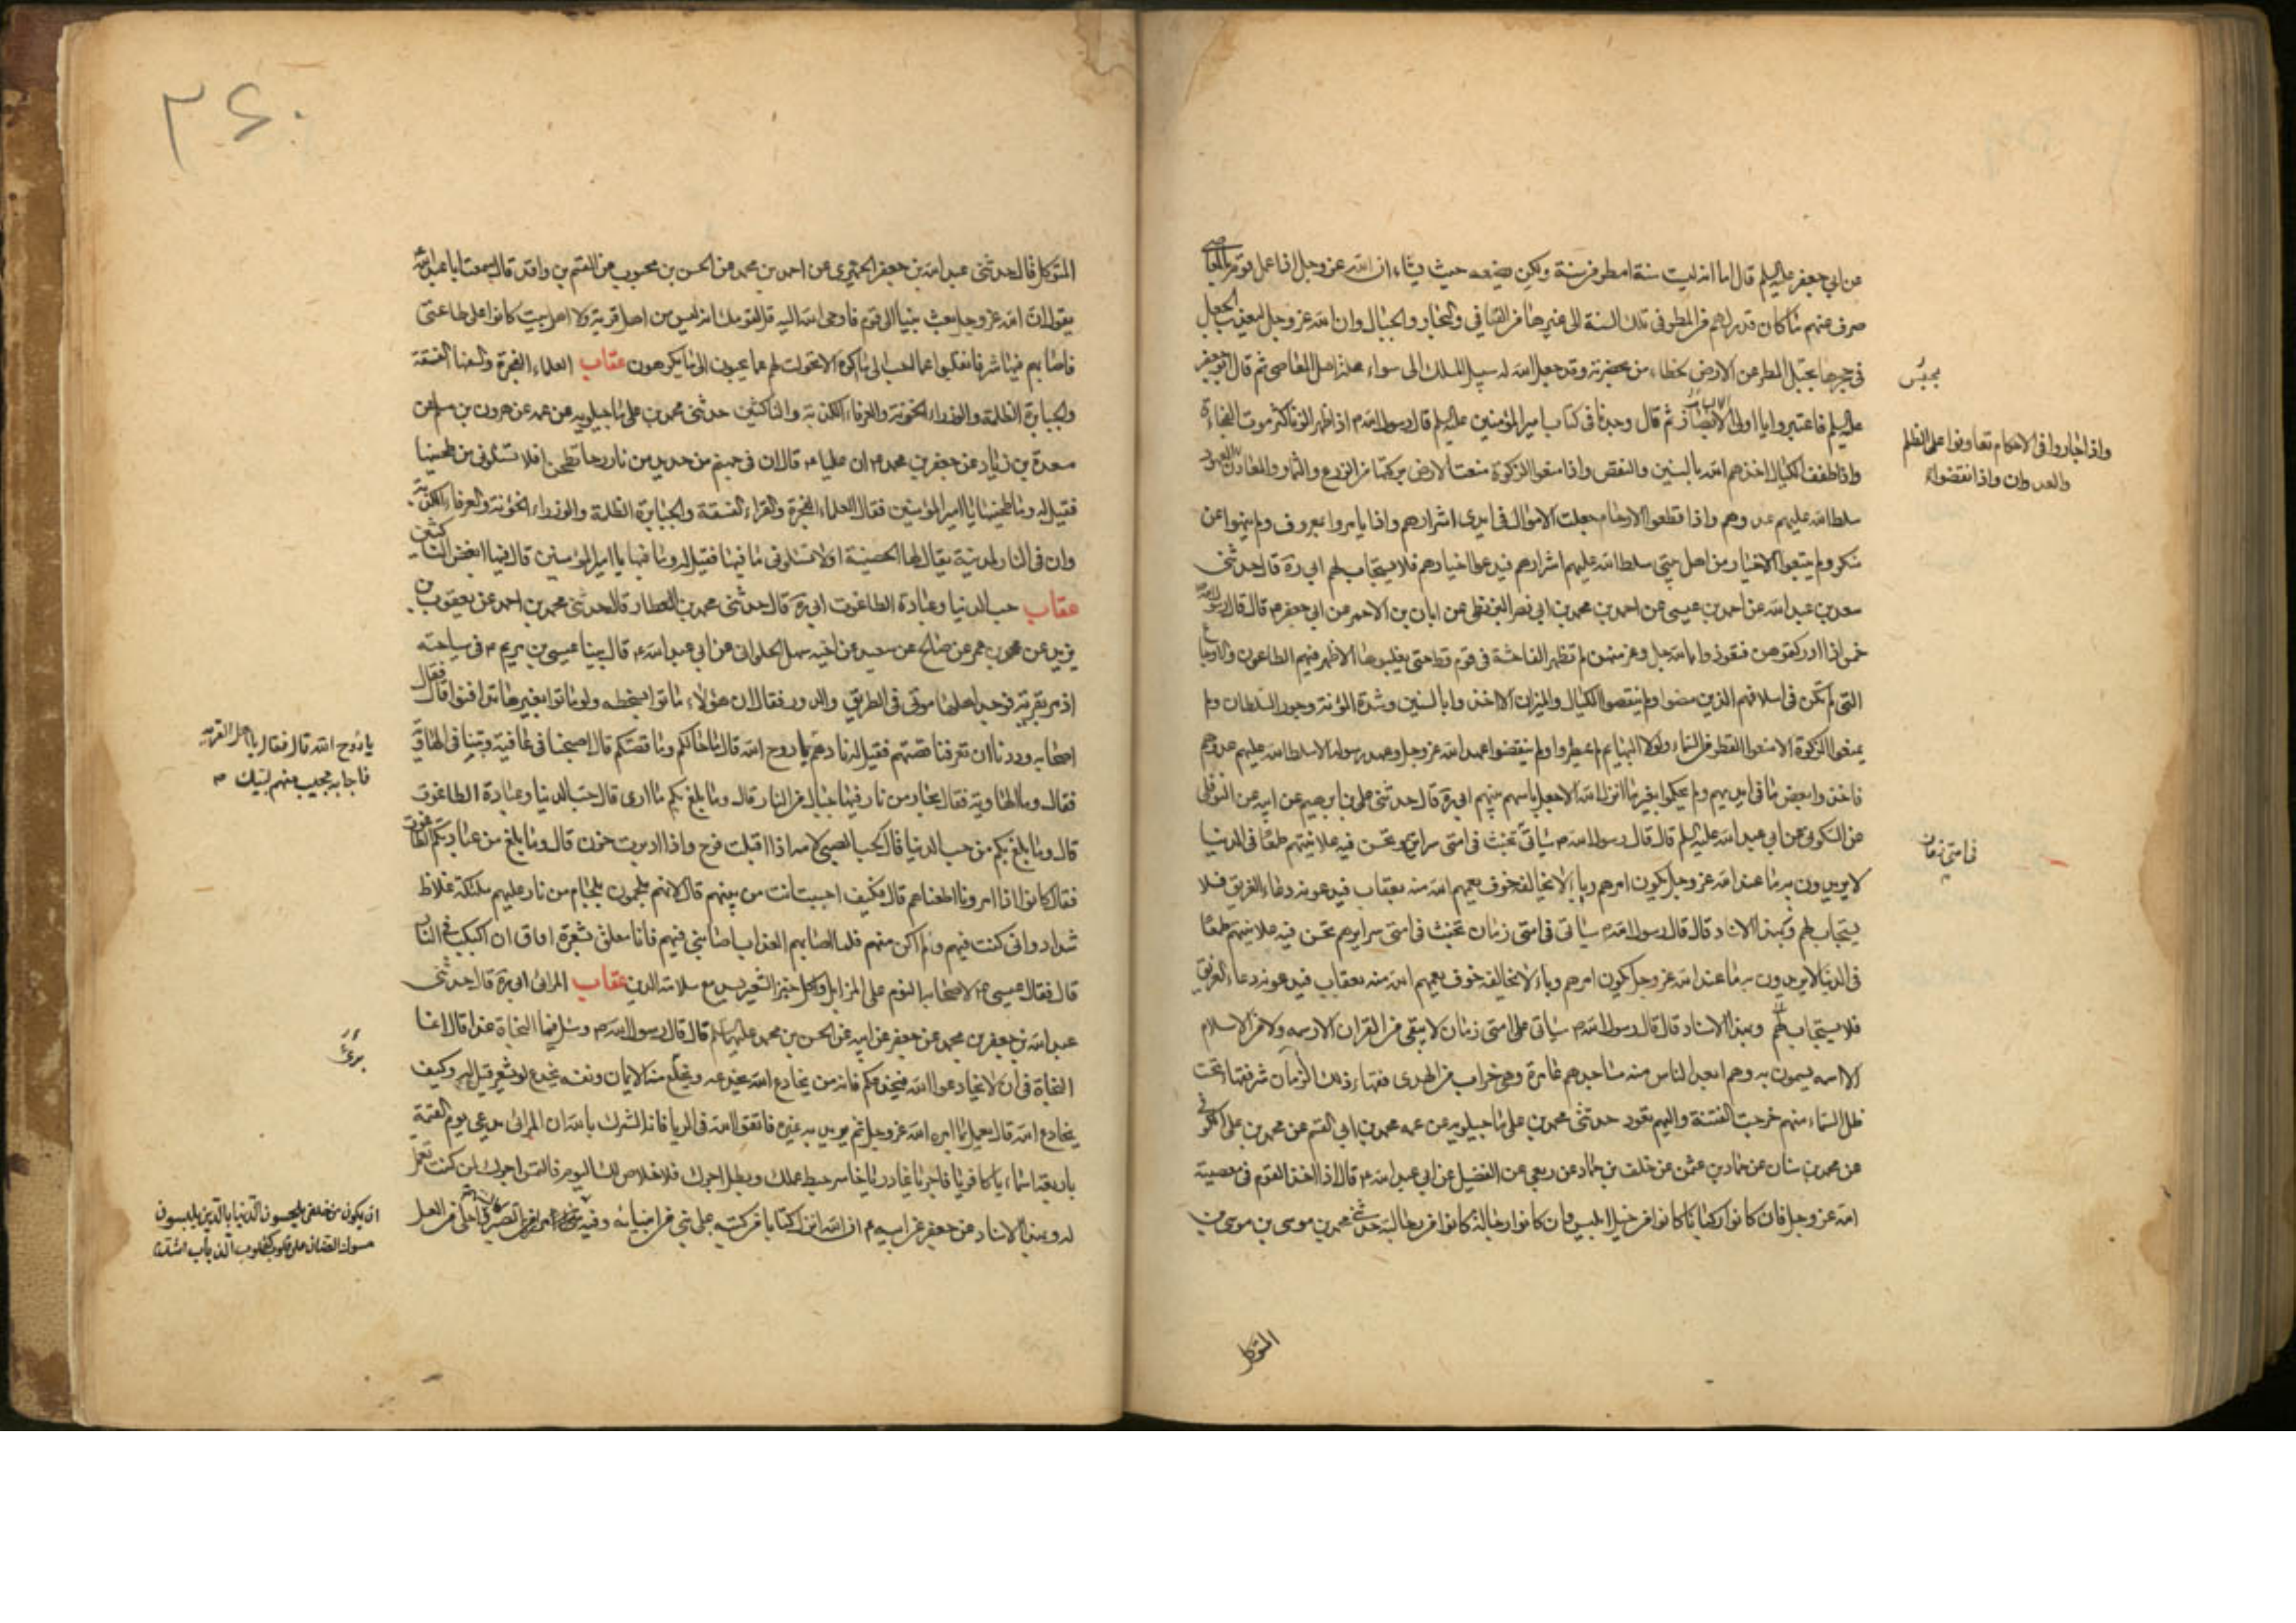 عن ابي جعفر عليه السلم قال اما انه ليست سنة امطر من سنة ولكن يضعه حيث يشاء ان الله عز وجل اذا عمل قوم بالمعاصي
صرف عنهم ما كان قدر لهم من المطر في تلك السنة الى غيرها من الفيافي والبحار والجبال وان الله عز وجل ليعذب الجعل
في جحرها بحبس المطر عن الارض بخطاء من بحضرته وقد جعل الله له سبيل المسلك الى سواء محلة اهل المعاصي ثم قال ابو جعفر
يحبس
عليه السلم فاعتبروا يا اولي الابصار ثم قال وجدنا في كتاب امير المؤمنين عليه السلم قال رسول الله ص اذا ظهر الزنا كثر موت الفجاءة
واذا طفف المكيال اخذهم الله بالسنين والنقص واذا منعوا الزكوة منعت الارض بركتها من الزرع والثمار والمعادن
واذا جاروا في الاحكام تعاونوا على الظلم
والعدوان واذا نقضوا العهود
سلط الله عليهم عدوهم واذا قطعوا الارحام جعلت الاموال في ايدي اشرارهم واذا لم يامروا بمعروف ولم ينهوا عن
منكر ولم يتبعوا الاخيار من اهل بيتي سلط الله عليهم اشرارهم فيدعوا خيارهم فلا يستجاب لهم ابي ره قال حدثني
سعد بن عبد الله عن احمد بن عيسى عن احمد بن محمد بن ابي نصر البزنطي عن ابان بن الاحمر عن ابي جعفر ع قال قال رسول الله
خمس اذا ادركتموهن فتعوذوا بالله جل وعز منهن لم تظهر الفاحشة في قوم قط حتى يعلنوها الا ظهر فيهم الطاعون والاوجاع
التي لم تكن في اسلافهم الذين مضوا ولم ينقصوا المكيال والميزان الا اخذوا بالسنين وشدة المؤنة وجور السلطان ولم
يمنعوا الزكوة الا منعوا القطر من السماء ولولا البهايم لم يمطروا ولم ينقضوا عهد الله عز وجل وعهد رسوله الا سلط الله عليهم عدوهم
فاخذوا بعض ما في ايديهم ولم يحكموا بغير ما انزل الله الا جعل باسهم بينهم ابي ره قال حدثني علي بن ابرهيم عن ابيه عن النوفلي
عن السكوني عن ابي عبد الله عليه السلم قال قال رسول الله ص سياتي تخبث في امتي سرايرهم وتحسن فيه علانيتهم طمعا في الدنيا
في امتي زمان
لا يريدون به ما عند الله عز وجل يكون امرهم رياء لا يخالفه خوف يعمهم الله منه بعقاب فيدعونه دعاء الغريق فلا
يستجاب لهم وبهذا الاسناد قال قال رسول الله ص سياتي في امتي زمان تخبث في امتي سرايرهم تحسن فيه علانيتهم طمعا
في الدنيا لا يريدون به ما عند الله عز وجل يكون امرهم رياء لا يخالفه خوف يعمهم الله منه بعقاب فيدعونه دعاء الغريق
فلا يستجاب لهم وبهذا الاسناد قال قال رسول الله ص سياتي على امتي زمان لا يبقى من القران الا رسمه ولا من الاسلام
الا اسمه يسمون به وهم ابعد الناس منه مساجدهم عامرة وهي خراب من الهدى فقهاء ذلك الزمان شر فقهاء تحت
ظل السماء منهم خرجت الفتنة واليهم تعود حدثني محمد بن علي ماجيلويه عن عمه محمد بن ابي القسم عن محمد بن علي الكوفي
عن محمد بن سنان عن حماد بن عثمن عن خلف بن حماد عن ربعي عن الفضيل عن ابي عبد الله ع قال اذا اخذ القوم في معصية
الله عز وجل فان كانوا ركبانا كانوا من خيل ابليس وان كانوا رجالة كانوا من رجالته حدثني محمد بن موسى بن
المتوكل
٣٤٠
المتوكل قال حدثني عبد الله بن جعفر الحميري عن احمد بن محمد عن الحسن بن محبوب عن القسم بن واقد قال سمعت ابا عبد الله
يقول ان الله عز وجل بعث نبيا الى قوم فاوحى الله اليه قل لقومك انه ليس من اهل قرية ولا اهل بيت كانوا على طاعتي
فاصابهم فيها شر فانتقلوا عما احب الى ما اكره الا تحولت لهم عما يحبون الى ما يكرهون عقاب العلماء الفجرة والفسقة
والجبابرة الظلمة والوزراء الخونة والعرفاء الكذبة والناكثين حدثني محمد بن علي ماجيلويه عن عمه عن هرون بن مسلم عن
مسعدة بن زياد عن جعفر بن محمد ع ان عليا ع قال ان في جهنم من حديد من نار رحا تطحن افلا تسئلوني من طحينها
فقيل له وما طحينها يا امير المؤمنين فقال العلماء الفجرة والقراء الفسقة والجبابرة الظلمة والوزراء الخونة والعرفاء الكذبة
وان في النار لمدينة يقال لها الحصينة افلا تسئلوني ما فيها فقيل له وما فيها يا امير المؤمنين قال فيها ايدي الناكثين
عقاب حب الدنيا وعبادة الطاغوت ابي ره قال حدثني محمد بن العطار قال حدثني محمد بن احمد عن يعقوب بن
يزيد عن محمد بن عمر عن صالح عن سعيد عن اخيه سهل الحلواني عن ابي عبد الله ع قال بينا عيسى بن مريم ع في سياحته
اذ مر بقرية فوجد اهلها موتى في الطريق والدور فقال ان هؤلاء ماتوا بسخطه ولو ماتوا بغيرها تدافنوا قال فقال
اصحابه وددنا ان تعرفنا قصتهم فقيل له نادهم يا روح الله قال ما حالكم وما قصتكم قال اصبحنا في عافية وبتنا في الهاوية
يا روح الله قال فقال يا اهل القرية
فاجابه مجيب منهم لبيك
فقال وما الهاوية فقال بحار من نار فيها جبال من النار قال وما بلغ بكم ما ارى قال حب الدنيا وعبادة الطاغوت
قال وما بلغ بكم من حب الدنيا قال كحب الصبي لامه اذا اقبلت فرح واذا ادبرت حزن قال وما بلغ من عبادتكم الطاغوت
فقال كانوا اذا امرونا اطعناهم قال فكيف اجبت انت من بينهم قال لانهم ملجمون بلجام من نار عليهم ملئكة غلاظ
شداد واني كنت فيهم ولم اكن منهم فلما اصابهم العذاب اصابني فيهم فانا معلق بشعرة اخاف ان اكبكب في النار
قال فقال عيسى ع لاصحابه النوم على المزابل واكل خبز الشعير يسير مع سلامة الدين عقاب المرائي ابي ره قال حدثني
عبد الله بن جعفر بن محمد عن جعفر عن ابيه عن الحسن بن محمد عليهما السلم قال قال رسول الله ص وسئل فيما النجاة غدا قال انما
النجاة في ان لا تخادعوا الله فيخدعكم فانه من يخادع الله يخدعه ويخلع منه الايمان ونفسه يخدع لو يشعر قيل له وكيف
يخادع الله قال يعمل بما امره الله عز وجل ثم يريد به غيره فاتقوا الله في الريا فانه الشرك بالله ان المرائي يدعى يوم القيمة
باربعة اسماء يا كافر يا فاجر يا غادر يا خاسر حبط عملك وبطل اجرك فلا خلاص لك اليوم فالتمس اجرك ممن كنت تعمل
له وبهذا الاسناد عن جعفر عن ابيه ع ان الله انزل كتابا من كتبه على نبي من انبيائه وفيه احلى من العسل
ان يكون من خلقي يلحسون الدنيا بالدين يلبسون
مسوك الضان على قلوب كقلوب الذئاب اشد